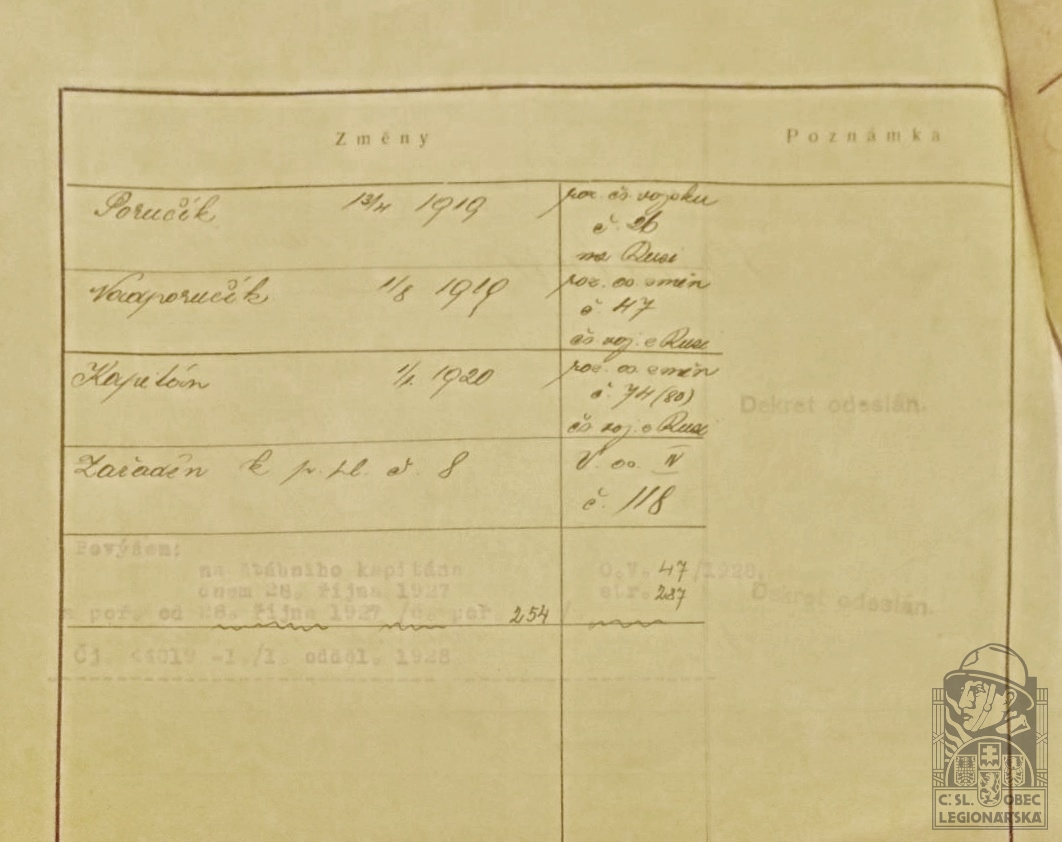 Změny Poznámka
Poručík 1919 roz. čs. vojsku
č. 26
na Rusi
Nadporučík 1/8 1919 roz. o. změn
č. 47
čs. voj. v Rusi
Kapitán 1920 roz. o. změn
č. 74 (80)
Dekret odeslán.
čs. voj. v Rusi
Zařaděn k p. pl. č. 8 V. o. IV
č. 118
Povýšen:
na štábního kapitána O.V. 47/1928,
dnem 28. října 1927 str. 287
Dekret odeslán.
s poř. od 28. října 1927 254
Čj -1./1. odděl. 1928
Č. SL. OBEC
LEGIONÁŘSKÁ